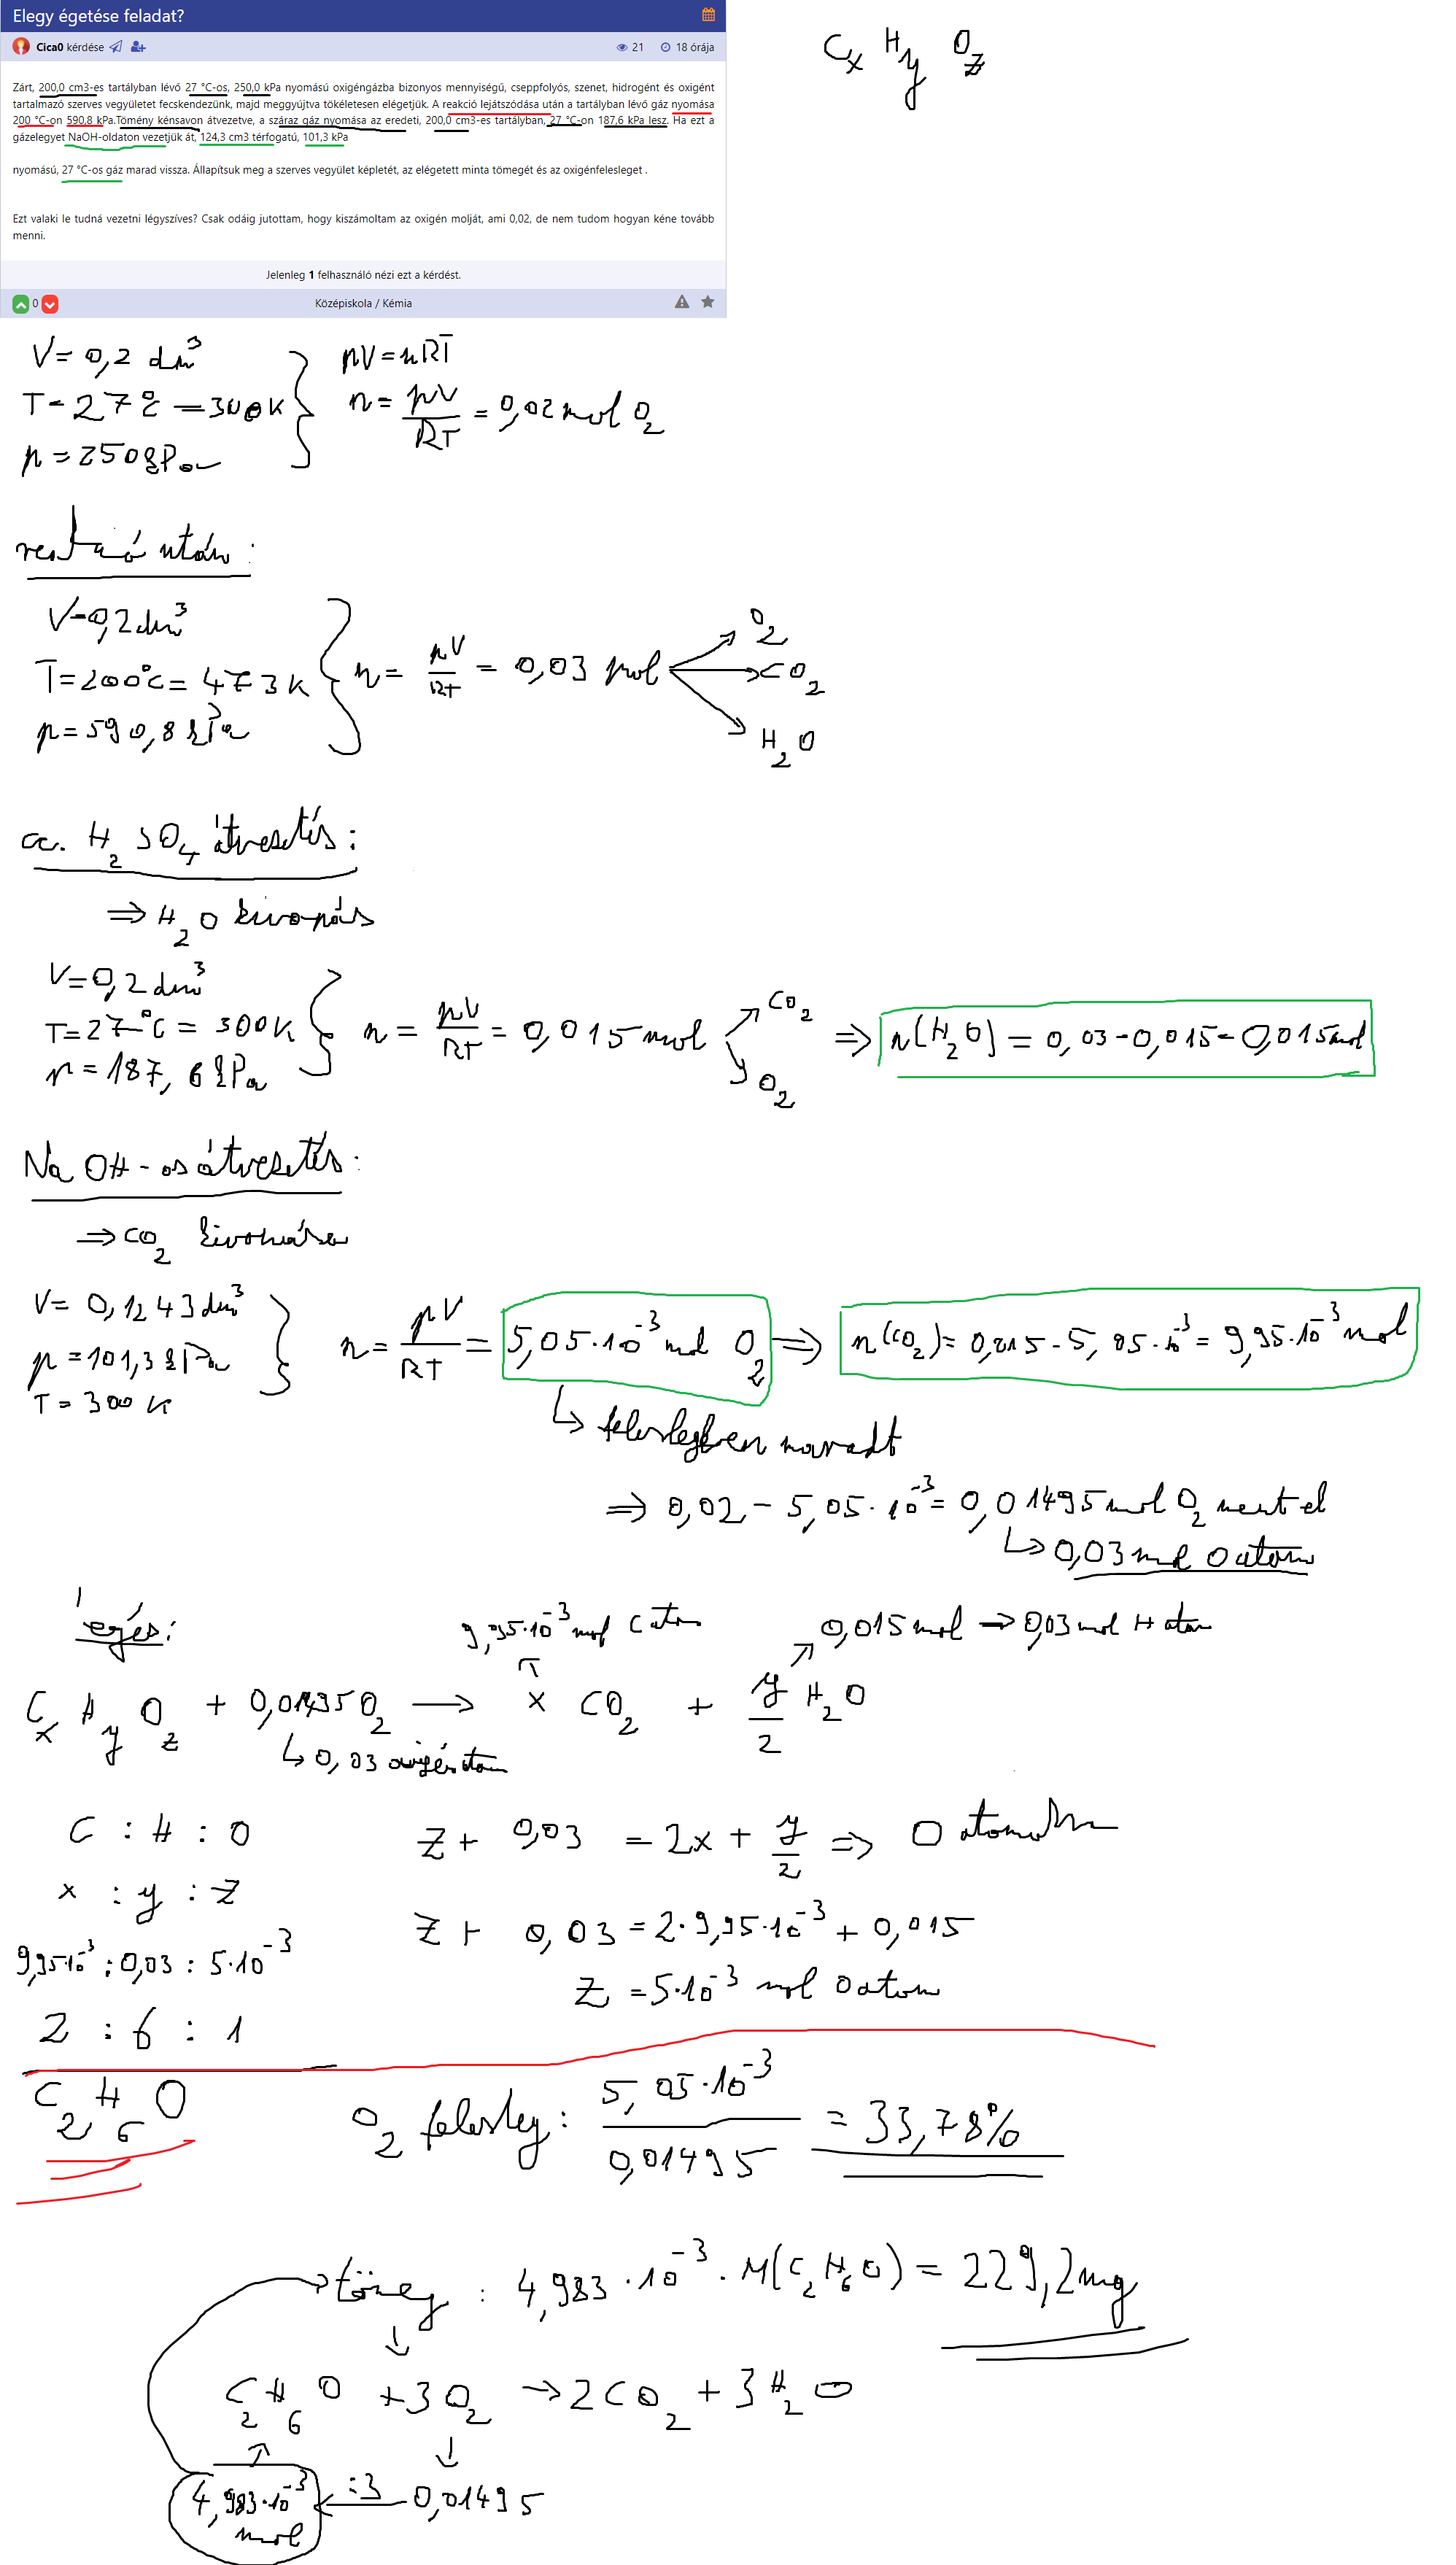 Elegy égetése feladat?
Cica0 kérdése 21 18 órája
Zárt, 200,0 cm3-es tartályban lévő 27 °C-os, 250,0 kPa nyomású oxigéngázba bizonyos mennyiségű, cseppfolyós, szenet, hidrogént és oxigént
tartalmazó szerves vegyületet fecskendezünk, majd meggyújtva tökéletesen elégetjük. A reakció lejátszódása után a tartályban lévő gáz nyomása
200 °C-on 590,8 kPa.Tömény kénsavon átvezetve, a száraz gáz nyomása az eredeti, 200,0 cm3-es tartályban, 27 °C-on 187,6 kPa lesz. Ha ezt a
gázelegyet NaOH-oldaton vezetjük át, 124,3 cm3 térfogatú, 101,3 kPa
nyomású, 27 °C-os gáz marad vissza. Állapítsuk meg a szerves vegyület képletét, az elégetett minta tömegét és az oxigénfelesleget .
Ezt valaki le tudná vezetni légyszíves? Csak odáig jutottam, hogy kiszámoltam az oxigén molját, ami 0,02, de nem tudom hogyan kéne tovább
menni.
Jelenleg 1 felhasználó nézi ezt a kérdést.
0 Középiskola / Kémia
CxHyOz
V=0,2 dm³
T=27°C=300K
p=250kPa
pV=nRT
n=pV/RT=0,02mol O2
reakció után:
V=0,2dm³
T=200°C=473K
p=590,8kPa
n=pV/RT=0,03 mol
O2
CO2
H2O
cc. H2SO4 átvezetés:
⇒H2O kivonás
V=0,2dm³
T=27°C=300K
p=187,6kPa
n=pV/RT=0,015mol
CO2
O2
⇒ n(H2O)=0,03-0,015=0,015mol
NaOH-os átvezetés:
⇒CO2 kivonása
V=0,1243dm³
p=101,3kPa
T=300K
n=pV/RT=5,05·10⁻³mol O2 ⇒ n(CO2)=0,015-5,05·10⁻³=9,95·10⁻³mol
↳ feleslegben maradt
⇒ 0,02-5,05·10⁻³=0,01495mol O2 ment el
↳ 0,03mol O atom
égés:
9,95·10⁻³mol C atom
0,015mol → 0,03mol H atom
CxHyOz + 0,01495O2 → x CO2 + y/2 H2O
↳ 0,03 oxigénatom
C : H : O
x : y : z
9,95·10⁻³ : 0,03 : 5·10⁻³
2 : 6 : 1
C2H6O
z+ 0,03 =2x+ y/2 ⇒ O atomokra
z+ 0,03=2·9,95·10⁻³+0,015
z=5·10⁻³ mol O atom
O2 felesleg: 5,05·10⁻³/0,01495 =33,78%
tömeg: 4,983·10⁻³·M(C2H6O)=229,2mg
C2H6O +3O2 →2CO2+3H2O
4,983·10⁻³ mol ← :3 0,01495